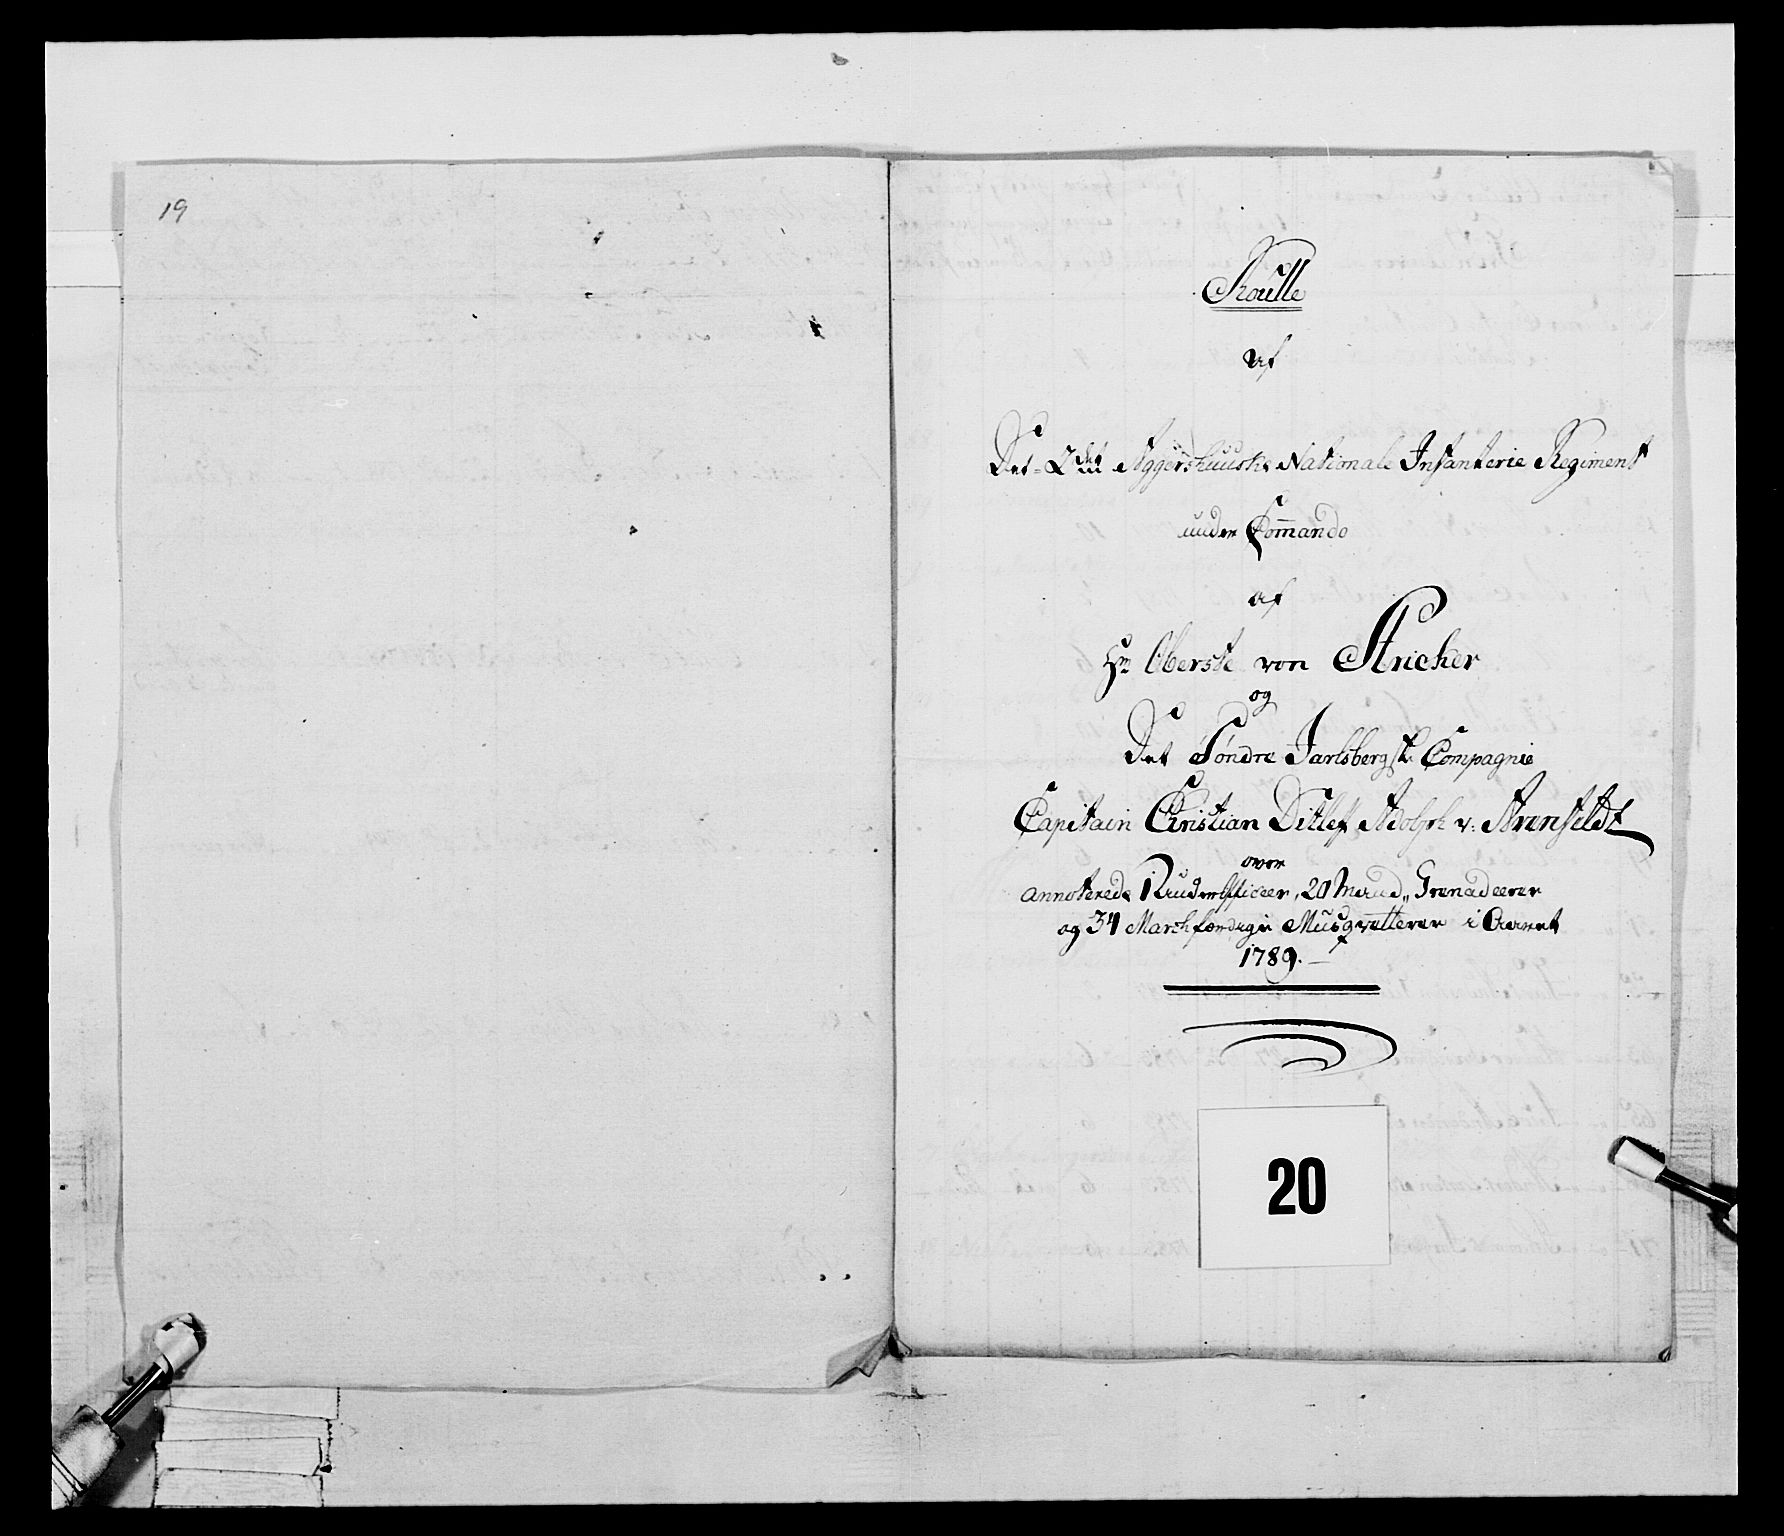 19
Roulle
af
Det 2det Aggershuuske Nationale Infanterie Regiment
under Com̄ando
af
Hr Oberste von Stricker
og
Det Søndre Jarlsbergske Compagnie
Capitain Christian Ditlef Adolph v: Arenfeldt
over
annoterede 1 Underofficeer, 20 Mand Grenadeerer
og 34 Marchfærdige Musqvetterer i Aaret
1789.
20